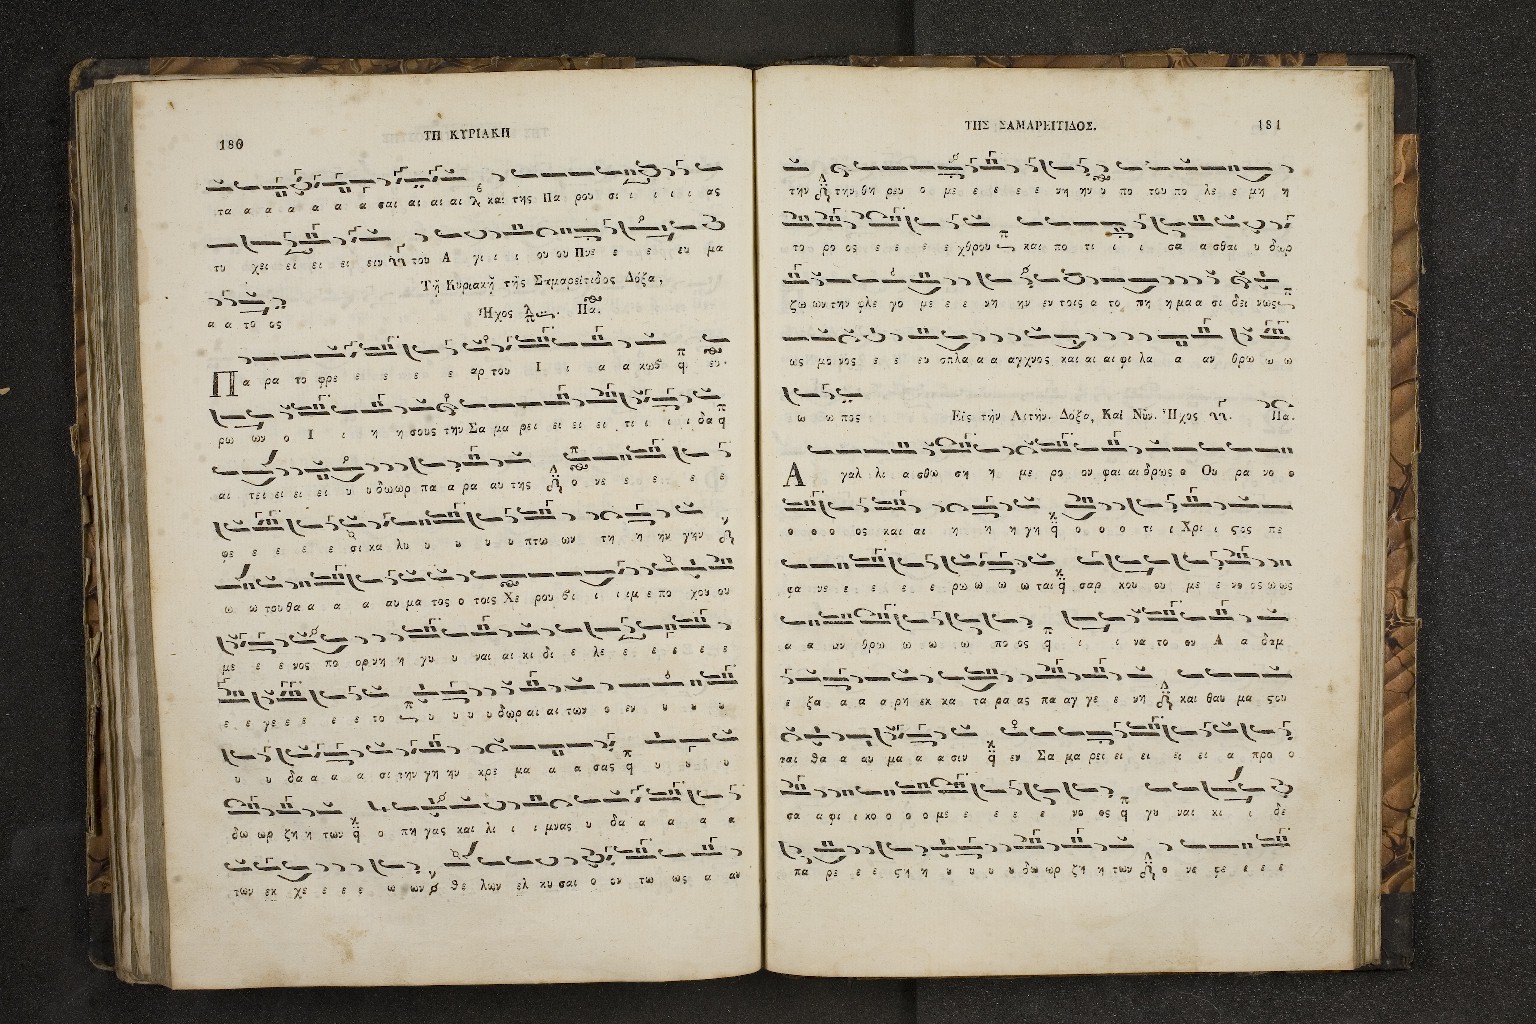 180
ΤΗ ΚΥΡΙΑΚΗ
τα α α α α α α σαι αι αι αι και της Πα ρου σι ι ι ι ι ας
τυ χει ει ει ει ειν του Α γι ι ι ου ου Πνε ε ε ευ μα
Τῇ Κυριακῇ τῆς Σαμαρείτιδος Δόξα,
α α το ος
Ἦχος Πα.
Πα ρα το φρε ε ε ε ε αρ του Ι ι α α κωβ ευ
ρω ων ο Ι ι η η σους την Σα μα ρει ει ει ει τι ι ι ι δα
αι τει ει ει ει υ υ δωωρ πα α ρα αυ της ο νε ε ε ε ε
φε ε ε ε ε σι κα λυ υ υ υ υ πτω ων τη η ην γην
ω ω του θα α α α αυ μα τος ο τοις Χε ρου βι ι ι ιμ ε πο χου ου
με ε ε νος πο ορ νη η γυ υ ναι αι κι δι ε λε ε ε ε ε ε
ε ε γε ε ε ε ε το υ υ υ υ δωρ αι αι των ο εν υ υ υ
υ υ δα α α α σι την γη ην κρε μα α α σας υ υ υ
δω ωρ ζη η των ο πη γας και λι ι ι μνας υ δα α α α α
των εκ χε ε ε ε ω ων θε λων ελ κυ σαι ο ον τω ως α αυ
ΤΗΣ ΣΑΜΑΡΕΙΤΙΔΟΣ.
181
την την θη ρευ ο με ε ε ε ε νη ην υ πο του πο λε ε μη η
το ρο ος ε ε ε ε χθρου και πο τι ι ι σα α σθαι υ δωρ
ζω ων την φλε γο με ε ε νη ην εν τοις α το πη η μα α σι δει νως
ως μο νος ε ε ευ σπλα α α αγχνος και αι αι φι λα α αν θρω ω ω
ω ω πος
Εἰς τὴν Λιτήν. Δόξα, Καὶ Νῦν. Ἦχος Πα.
Α γαλ λι α σθω ση η με ρο ον φαι αι δρως ο Ου ρα νο ο
ο ο ο ος και αι η η η γη ο ο ο ο τι ι Χρι ι ςος πε
φα νε ε ε ε ε ρω ω ω ω ται σαρ κου ου με ε νο ος ω ως
α α αν θρω ω ω ω πο ος ι ι να το ον Α α δαμ
ε ξα α α α ρη εκ κα τα ρα ας πα αγ γε ε νη και θαυ μα ςου
ται θα α αυ μα α α σιν εν Σα μα ρει ει ει ει ει α προ ο
σα α φι ι κο ο ο ο με ε ε ε ε νο ος γυ ναι κι ι δε
πα ρε ε ε ςη η υ υ υ υ δω ωρ ζη η των ο νε φε ε ε ε